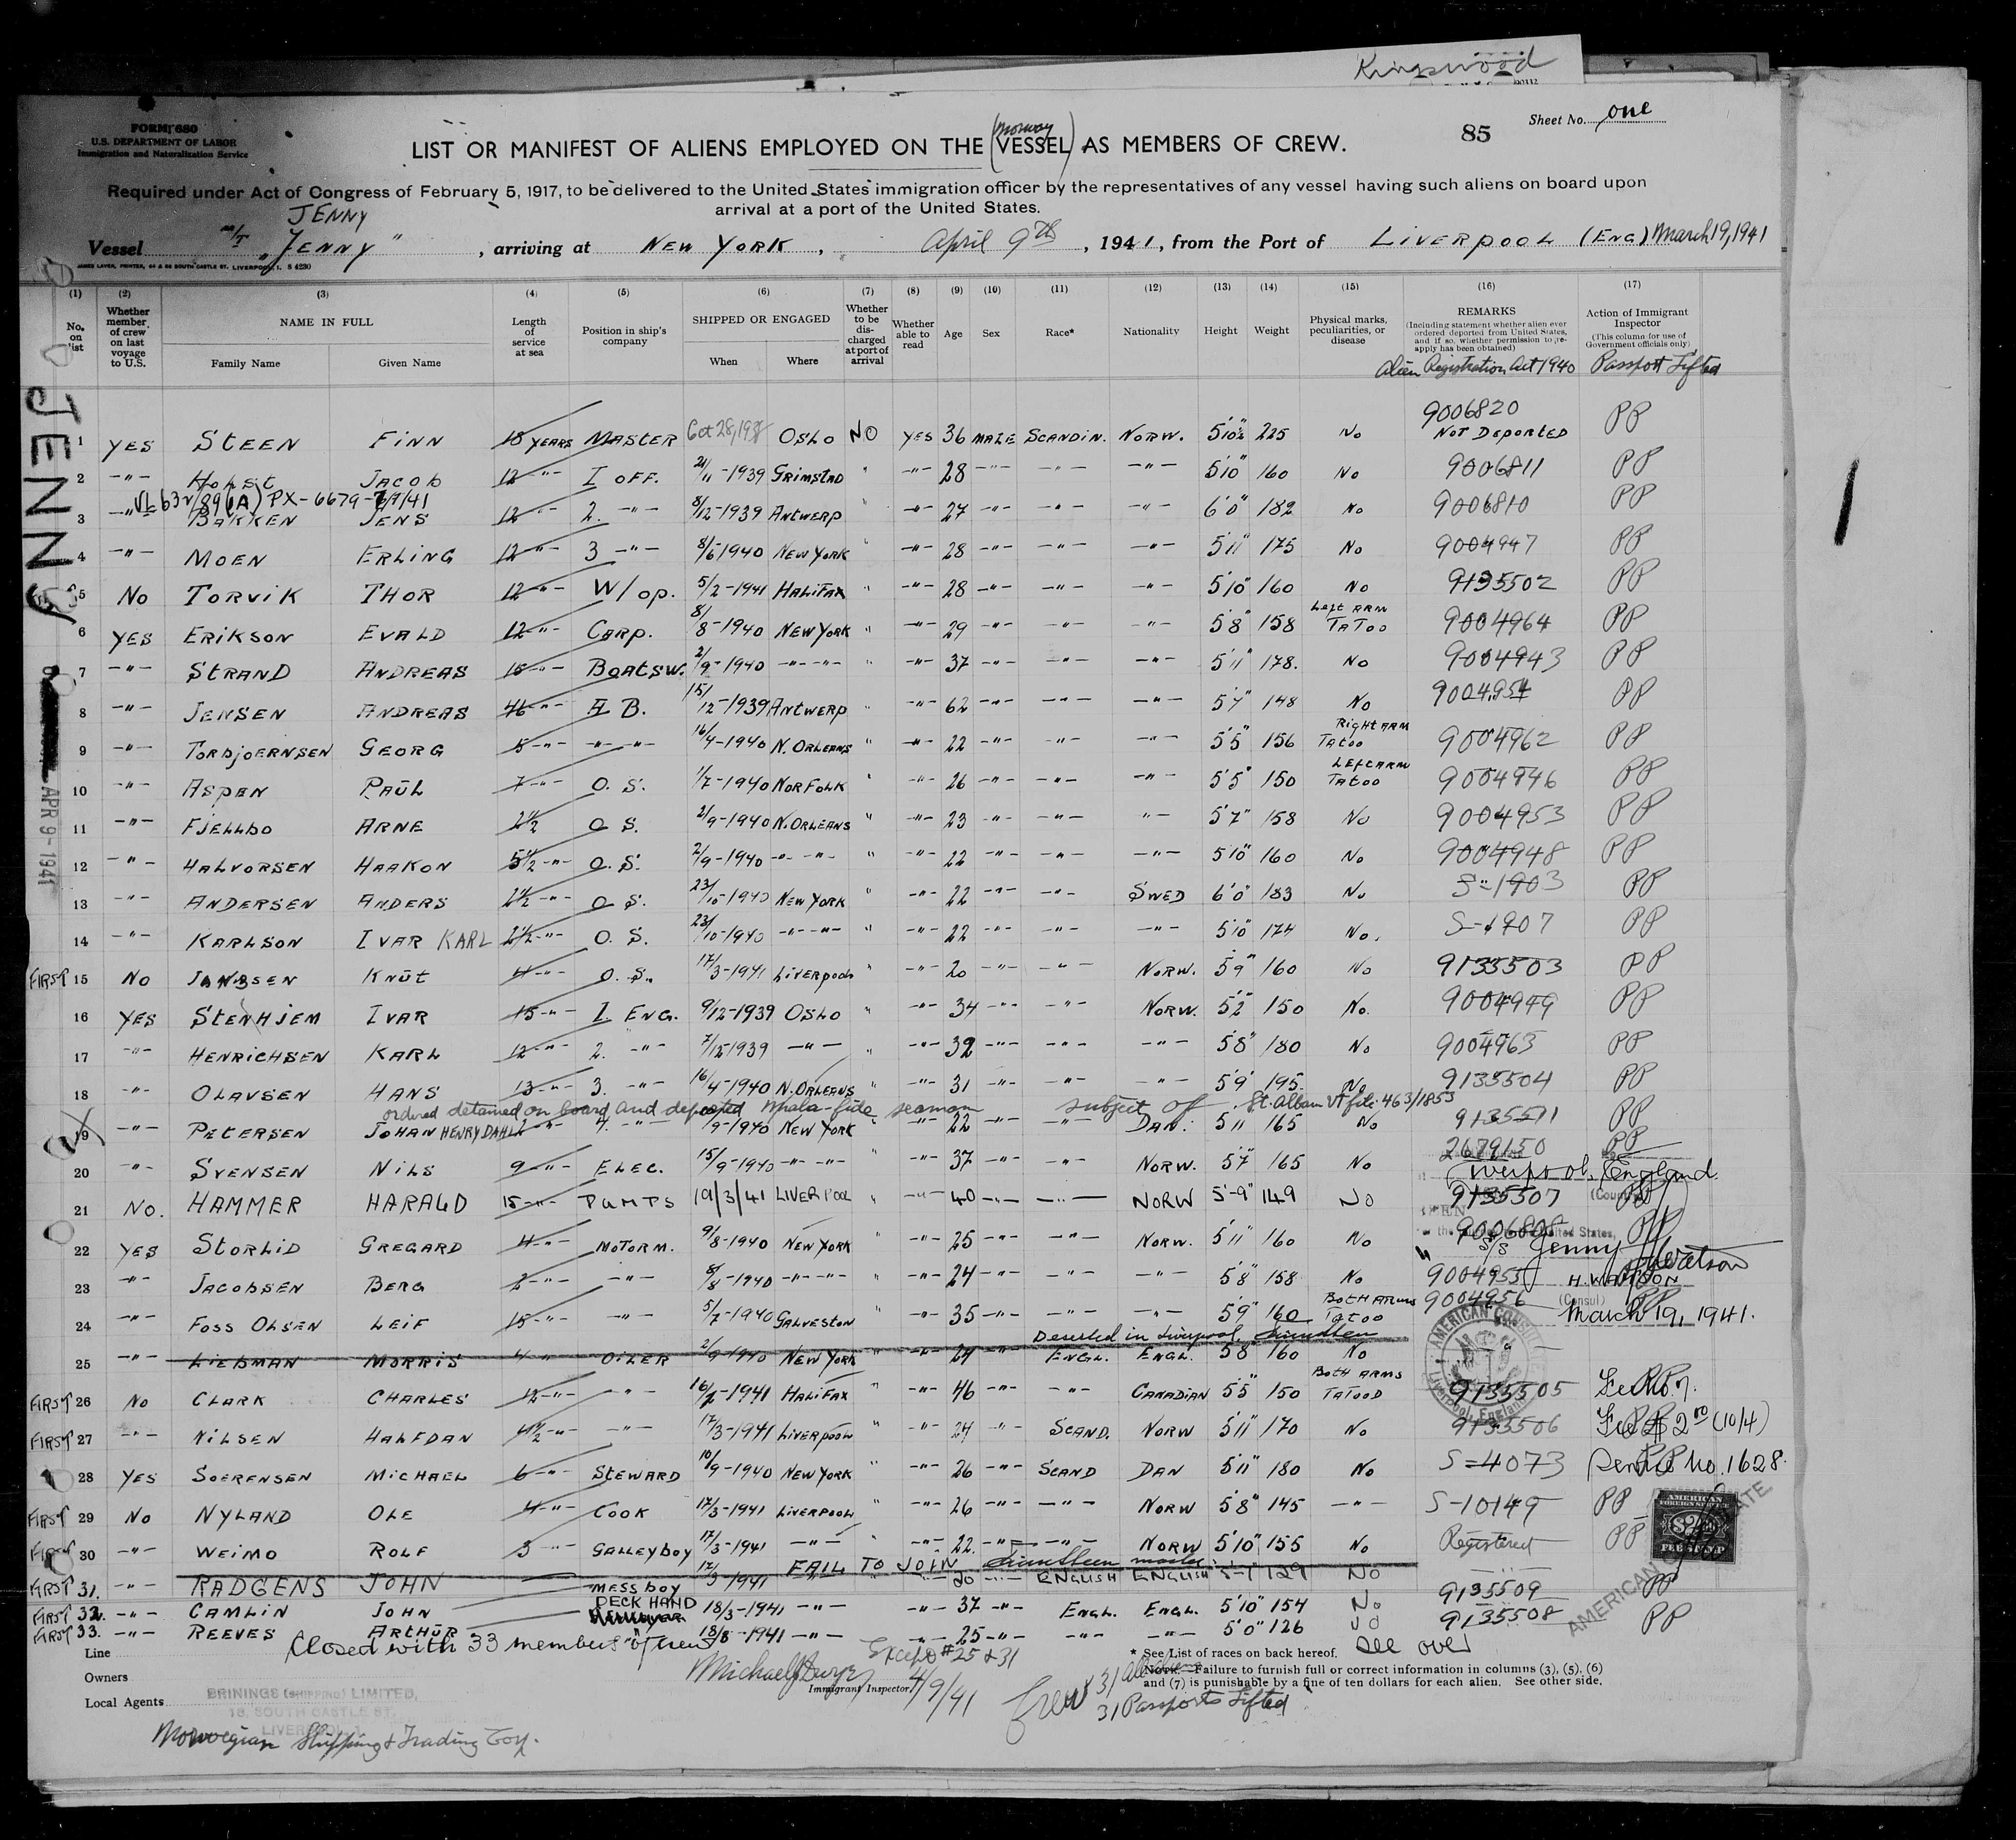 Kingswood
FORM 680
U.S. DEPARTMENT OF LABOR
Immigration and Naturalization Service
Sheet No. one
85
(Norway)
LIST OR MANIFEST OF ALIENS EMPLOYED ON THE VESSEL AS MEMBERS OF CREW.
Required under Act of Congress of February 5, 1917, to be delivered to the United States immigration officer by the representatives of any vessel having such aliens on board upon
arrival at a port of the United States.
JENNY
Vessel M/T "JENNY", arriving at NEW YORK, April 9th, 1941, from the Port of LIVERPOOL (ENG) March 19, 1941
JAMES LAVER, PRINTER, 64 & 66 SOUTH CASTLE ST. LIVERPOOL, 1. S 4230
(1) (2) (3) (4) (5) (6) (7) (8) (9) (10) (11) (12) (13) (14) (15) (16) (17)
No. on list
Whether member of crew on last voyage to U.S.
NAME IN FULL
Family Name Given Name
Length of service at sea
Position in ship's company
SHIPPED OR ENGAGED
When Where
Whether to be discharged at port of arrival
Whether able to read
Age Sex Race* Nationality Height Weight
Physical marks, peculiarities, or disease
REMARKS
(Including statement whether alien ever ordered deported from United States, and if so, whether permission to re-apply has been obtained)
Alien Registration Act 1940
Action of Immigrant Inspector
(This column for use of Government officials only)
Passport Lifted
JENNY
APR 9-1941
1 YES STEEN FINN 18 YEARS MASTER OSLO NO YES 36 MALE SCANDIN. NORW. 5'10½ 225 No 9006820 NOT DEPORTED PP
2 -"- HOLST JACOB 12 -"- I OFF. 21/11-1939 GRIMSTAD " -"- 28 -"- -"- -"- 5'10" 160 No 9006811 PP
PX-6679-
3 -"- BAKKEN JENS 12 -"- 2. -"- 8/12-1939 ANTWERP -"- 27 -"- -"- -"- 6'0" 182 No 9006810 PP
4 -"- MOEN ERLING 12 -"- 3 -"- 8/6 1940 NEW YORK " -"- 28 -"- -"- -"- 5'11" 175 No 9004947 PP
5 No TORVIK THOR 12 -"- W/op. 5/2-1941 HALIFAX " -"- 28 -"- -"- -"- 5'10" 160 No 9135502 PP
6 YES ERIKSON EVALD 12 -"- CARP. 8/8-1940 NEW YORK " -"- 29 -"- -"- -"- 5'8" 158 LEFT ARM TATOO 9004964 PP
7 -"- STRAND ANDREAS 15 -"- BOATSW. 2/9-1940 -"- -"- " -"- 37 -"- -"- -"- 5'11" 178. No 9004943 PP
8 -"- JENSEN ANDREAS 46 -"- A B. 15/12-1939 ANTWERP " -"- 62 -"- -"- -"- 5'7" 148 No 9004954 PP
9 -"- TORBJOERNSEN GEORG 5 -"- -"- -"- 16/4-1940 N. ORLEANS " -"- 22 -"- -"- -"- 5'5" 156 RIGHT ARM TATOO 9004962 PP
10 -"- ASPEN PAUL 7 -"- O. S. 1/7-1940 NORFOLK " -"- 26 -"- -"- -"- 5'5" 150 LEFT ARM TATOO 9004946 PP
11 -"- FJELLBO ARNE 2½ O S. 2/9-1940 N. ORLEANS " -"- 23 -"- -"- -"- 5'7" 158 No 9004953 PP
12 -"- HALVORSEN HAAKON 5½ -"- O. S. 2/9-1940 -"- -"- " -"- 22 -"- -"- -"- 5'10" 160 No 9004948 PP
13 -"- ANDERSEN ANDERS 2½ -"- O S. 23/10-1940 NEW YORK " -"- 22 -"- -"- SWED 6'0" 183 No S-1903 PP
14 -"- KARLSON IVAR KARL 2½ -"- O. S. 23/10-1940 -"- -"- " -"- 22 -"- -"- -"- 5'10" 174 No. S-1907 PP
FIRST 15 No KNUT 4 -"- O. S. 17/3-1941 LIVERPOOL " -"- 20 -"- -"- NORW. 5'9" 160 No 9135503 PP
16 YES STENHJEM IVAR 15 -"- I. ENG. 9/12-1939 OSLO " -"- 34 -"- -"- NORW. 5'2" 150 No. 9004949 PP
17 -"- HENRICHSEN KARL 12 -"- 2. -"- 7/12 1939 -"- " -"- 32 -"- -"- -"- 5'8" 180 No 9004963 PP
18 -"- OLAVSEN HANS 13 -"- 3. -"- 16/4-1940 N. ORLEANS " -"- 31 -"- -"- -"- 5'9" 195. No 9135504 PP
ordered detained on board and deported mala-fide seaman subject of St. Alban Vt file 463/1853
19 -"- PETERSEN JOHAN HENRY DAHL 4. -"- /9-1940 NEW YORK " -"- 22 -"- -"- DAN. 5'11 165 No 9135511 PP
20 -"- SVENSEN NILS 9 -"- ELEC. 15/9-1940 -"- -"- " -"- 37 -"- -"- NORW. 5'7" 165 No 2679150 PP
Liverpool, England
21 No. HAMMER HARALD 15 -"- PUMPS 19/3/41 LIVERPOOL " -"- 40 -"- -"- NORW 5'-9" 149 No 9135507 PP
22 YES STORLID GREGARD 4 -"- MOTORM. 9/8-1940 NEW YORK " -"- 25 -"- -"- NORW. 5'11" 160 No 9006808 PP
S/S Jenny
23 -"- JACOBSEN BERG 2 -"- -"- 8/8-1940 -"- -"- " -"- 24 -"- -"- -"- 5'8" 158 No 9004955 PP
H. Watson
H. WATSON
(Consul)
24 -"- FOSS OLSEN LEIF 15 -"- -"- 5/7-1940 GALVESTON -"- 35 -"- -"- -"- 5'9" 160 BOTH ARMS TATOO 9004956 PP
March 19, 1941.
Deserted in Liverpool
25 -"- LIEBMAN MORRIS 4 " OILER 2/9 1940 NEW YORK " -"- 24 -"- ENGL. ENGL. 5'8 160 No
AMERICAN CONSUL
Liverpool, England
FIRST 26 No CLARK CHARLES 12 -"- -"- 16/2-1941 HALIFAX " -"- 46 -"- -"- CANADIAN 5'5" 150 BOTH ARMS TATOOD 9135505 PP
FIRST 27 -"- NILSEN HALFDAN 4½ -"- -"- 17/3-1941 LIVERPOOL " -"- 24 -"- SCAND. NORW 5'11" 170 No 9135506 Fee $2.00 (10/4)
28 YES SOERENSEN MICHAEL 6 -"- STEWARD 10/9-1940 NEW YORK " -"- 26 -"- SCAND DAN 5'11" 180 No S-4073 Service No. 1628.
FIRST 29 No NYLAND OLE 4 -"- COOK 17/3-1941 LIVERPOOL " -"- 26 -"- -"- NORW 5'8" 145 -"- S-10149 PP
FIRST 30 -"- WEIMO ROLF 3 -"- GALLEYBOY 17/3-1941 -"- " -"- 22. -"- -"- NORW 5'10" 155 No Registered PP
FAIL TO JOIN master.
FIRST 31. -"- RADGENS JOHN MESSBOY 17/3 1941 -"- 20 -"- ENGLISH ENGLISH 5-1" 129 No
FIRST 32. -"- CAMLIN JOHN DECK HAND 18/3-1941 -"- -"- 37 -"- ENGL. ENGL. 5'10" 154 No 9135509 PP
FIRST 33. -"- REEVES ARTHUR -"- 18/8-1941 -"- -"- 25 -"- -"- -"- 5'0" 126 No 9135508 PP
AMERICAN FOREIGN SERVICE
$2
FEE STAMP
AMERICAN
Closed with 33 members of crew
Except #25 & 31
Line
Owners
Local Agents
BRININGS (SHIPPING) LIMITED,
18, SOUTH CASTLE ST.
LIVERPOOL, 1.
Norwegian Shipping & Trading Corp.
Michael J Dwyer 4/9/41
Immigrant Inspector
Crew 31 all aliens
31 Passports Lifted
* See List of races on back hereof. See over
NOTE.—Failure to furnish full or correct information in columns (3), (5), (6)
and (7) is punishable by a fine of ten dollars for each alien. See other side.